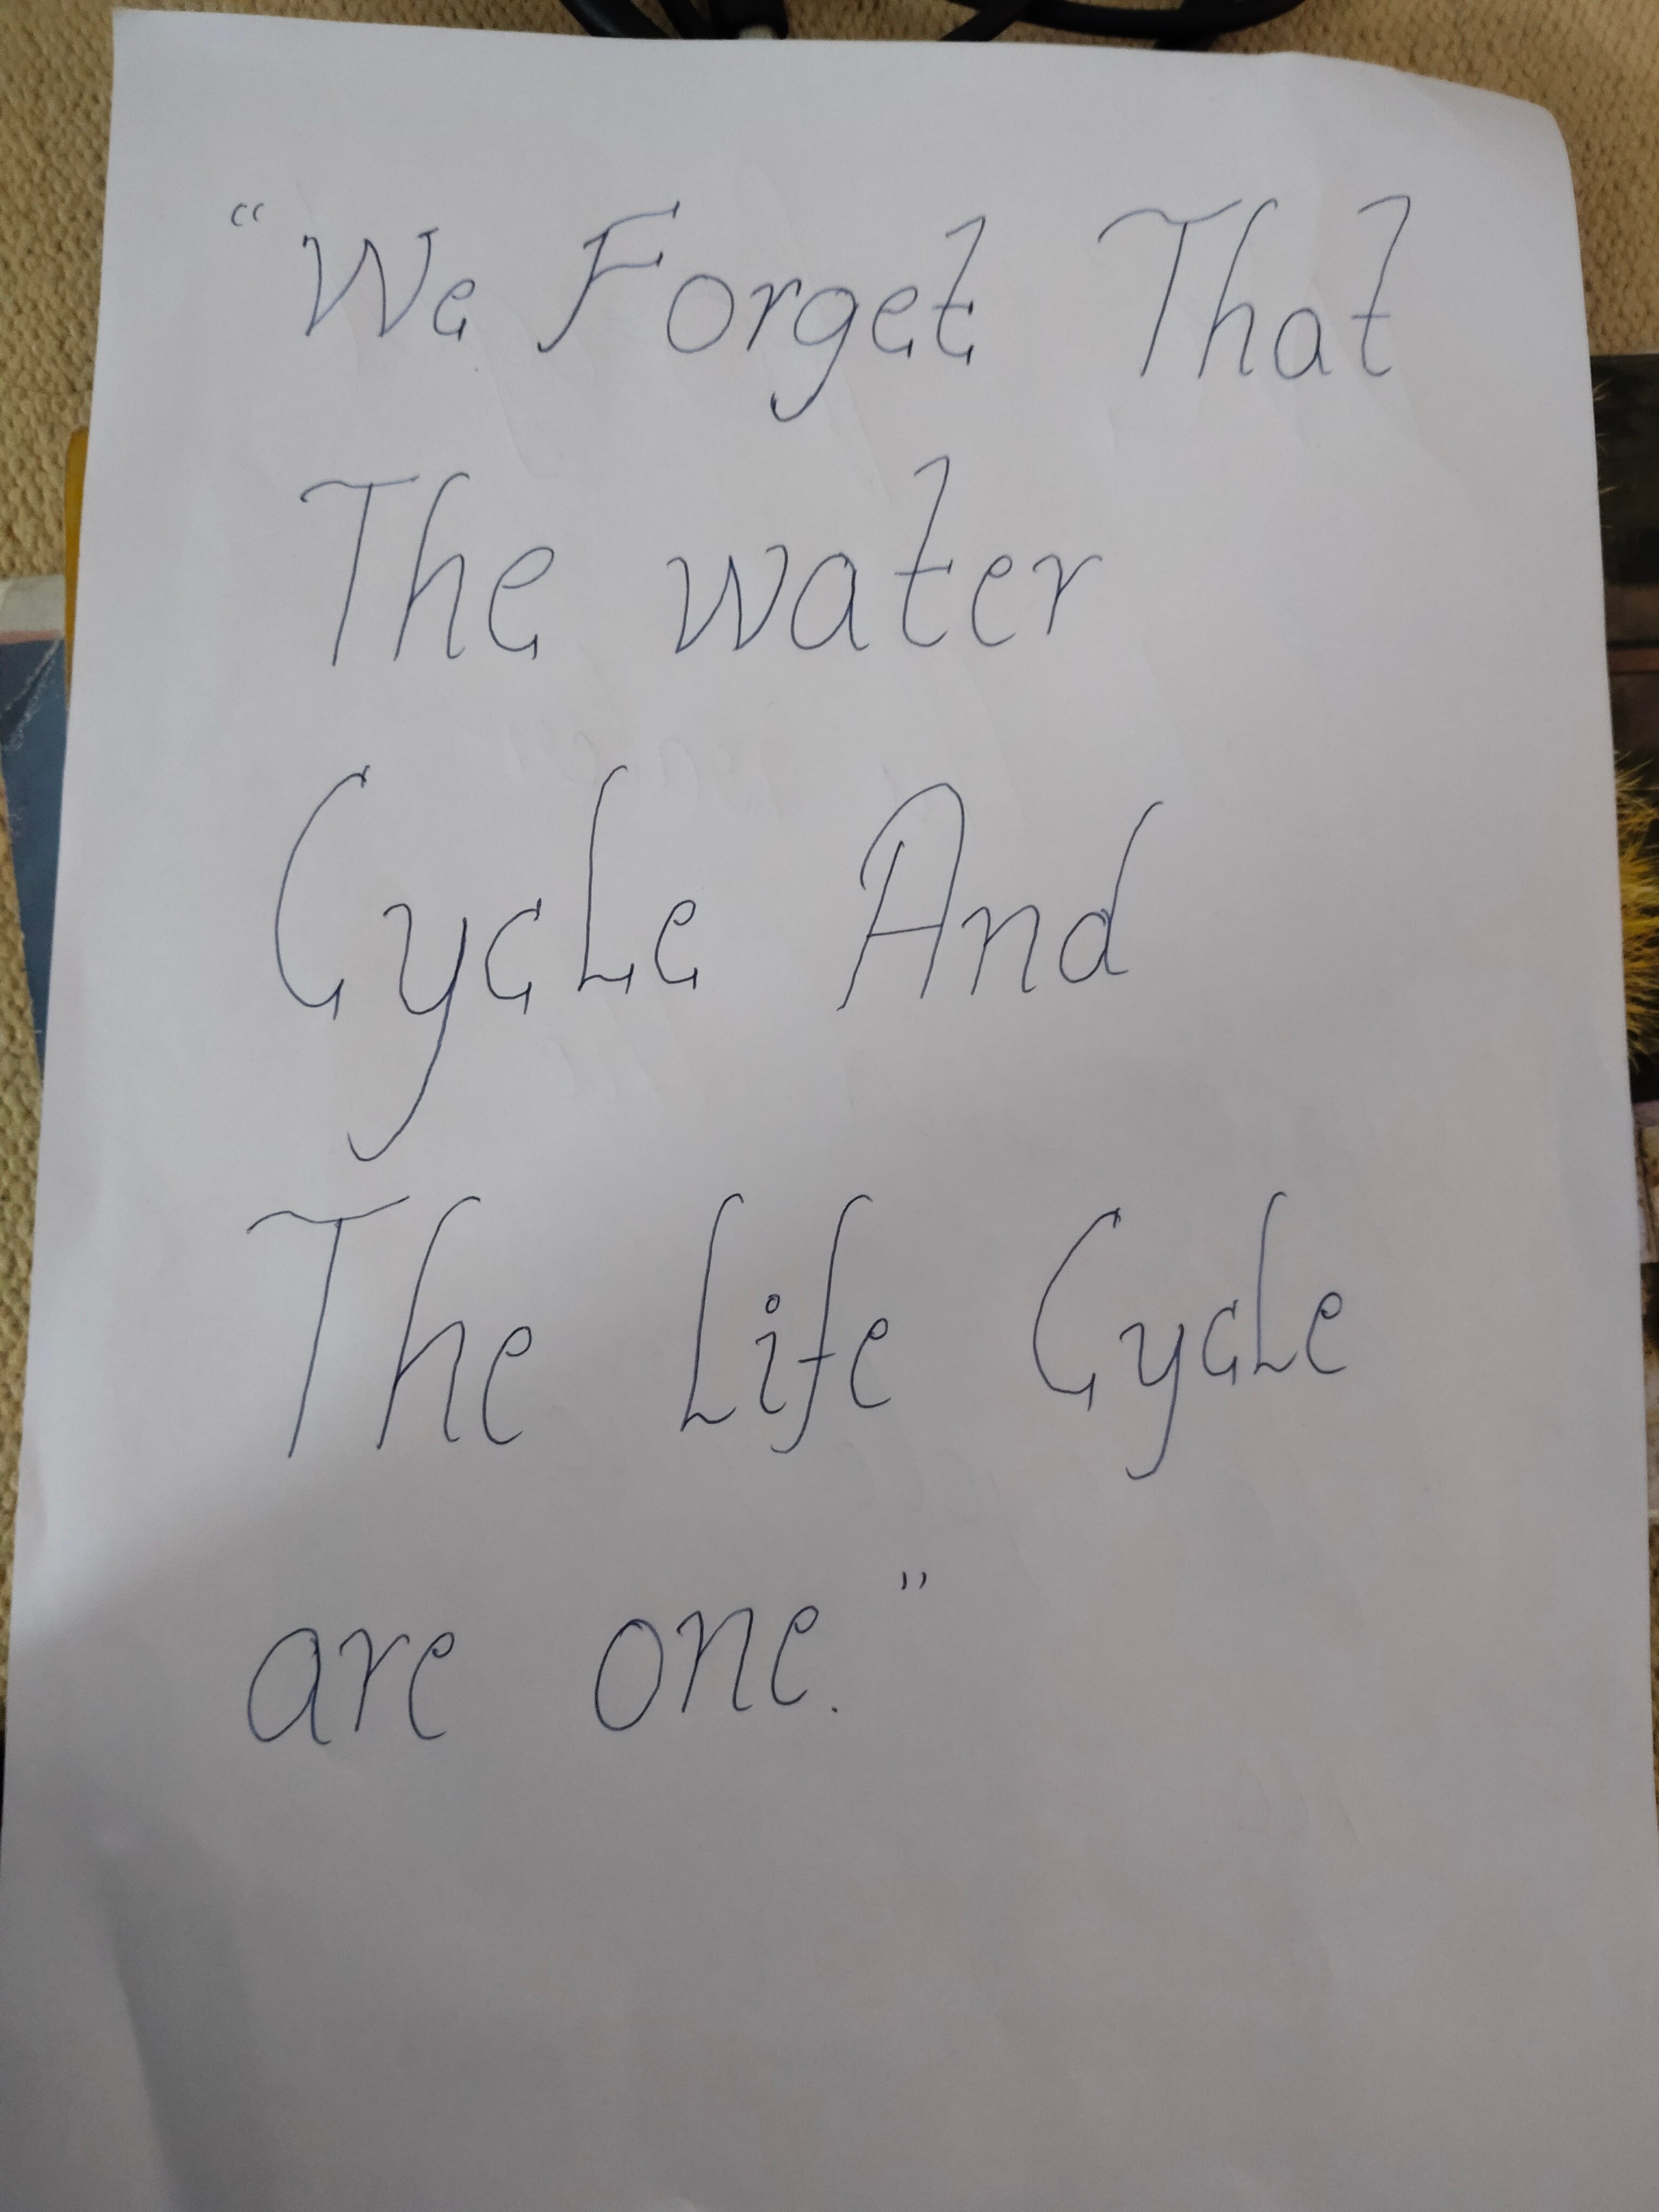 “We Forget That
The water
Cycle And
The Life Cycle
are one.”